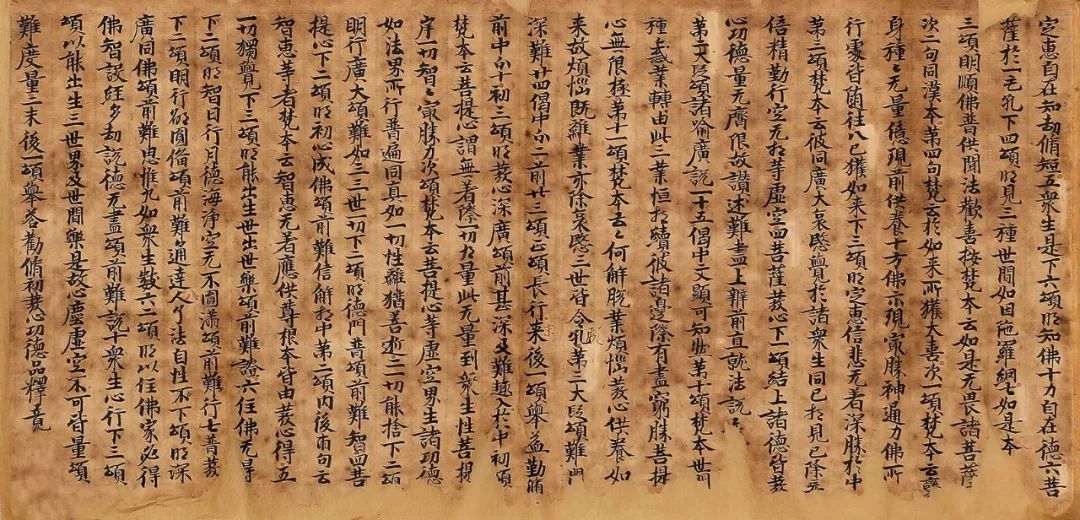 定惠自在知劫脩短五衆生是下六頌明知佛十力自在德六菩
薩於一毛孔下四頌明見三種世間如因陁羅網七如是本
三頌明順佛普供聞法歡喜按梵本云如是元畏諸菩薩
次二句同漢本第四句梵云於如來所獲大喜次一頌梵本云
身種々无量億現前供養十方佛示現寂勝神通力佛所
行處皆蘭往八已獲如來下三頌明定實信悲无着深勝於中
第三頌梵本云彼同廣大哀愍覺於諸衆生同已相見已除
倍精勤行空无相等虛空而菩薩荗心下一頌結上諸德皆荗
心功德量无齊限故讚述難盡上辨前直就法說
第二大段頌諸喻廣說十五偈中文顯可知此第十頌梵本世間
種々惑業轉由此三業恒相續彼諸邊際有盡窮勝菩提
心無很極第十一頌梵本去々何解脫業煩惱荗心供養如
來故煩惱既離業亦除哀愍三世皆令乳第二大段頌難門
深難廿四偈中分二前廿三頌正頌長行来後一頌舉益勤脩
前中分十初三頌明荗心深廣頌前甚深々難越入於中初頌
梵本云菩提心謂無著蔭一切力量此无量到衆生性菩提
岸一切智々寂勝力次頌梵本云菩提心等虛空界生諸功德
如法界所行普遍同真如一切性離猎善逝二一切能捨下二頌
明行廣大頌難如三三世一切下二頌明德門普頌前難智四菩
提心下二頌明初心成佛頌前難信解於中第二頌内後兩句云
智恵莘者梵本云智恵无着應供尊根本皆由荗心得五
一切獨覺下三頌明能出生世出世樂頌前難證六任佛无㝵
下二頌明智日行月德海淨空无不圓滿頌前難行七普荗
下二頌明行願圓俻頌前難々通達人々法自性不下頌明深
廣同佛頌前難思惟九如衆生數六二頌明以任佛家必得
佛智設経多劫說德无盡頌前難說十衆生心行下三頌
頌以能出生三世界及世間樂是故心應虛空不可皆量頌
難度量二末後一頌舉荅勸脩初荗心功德品釋竟